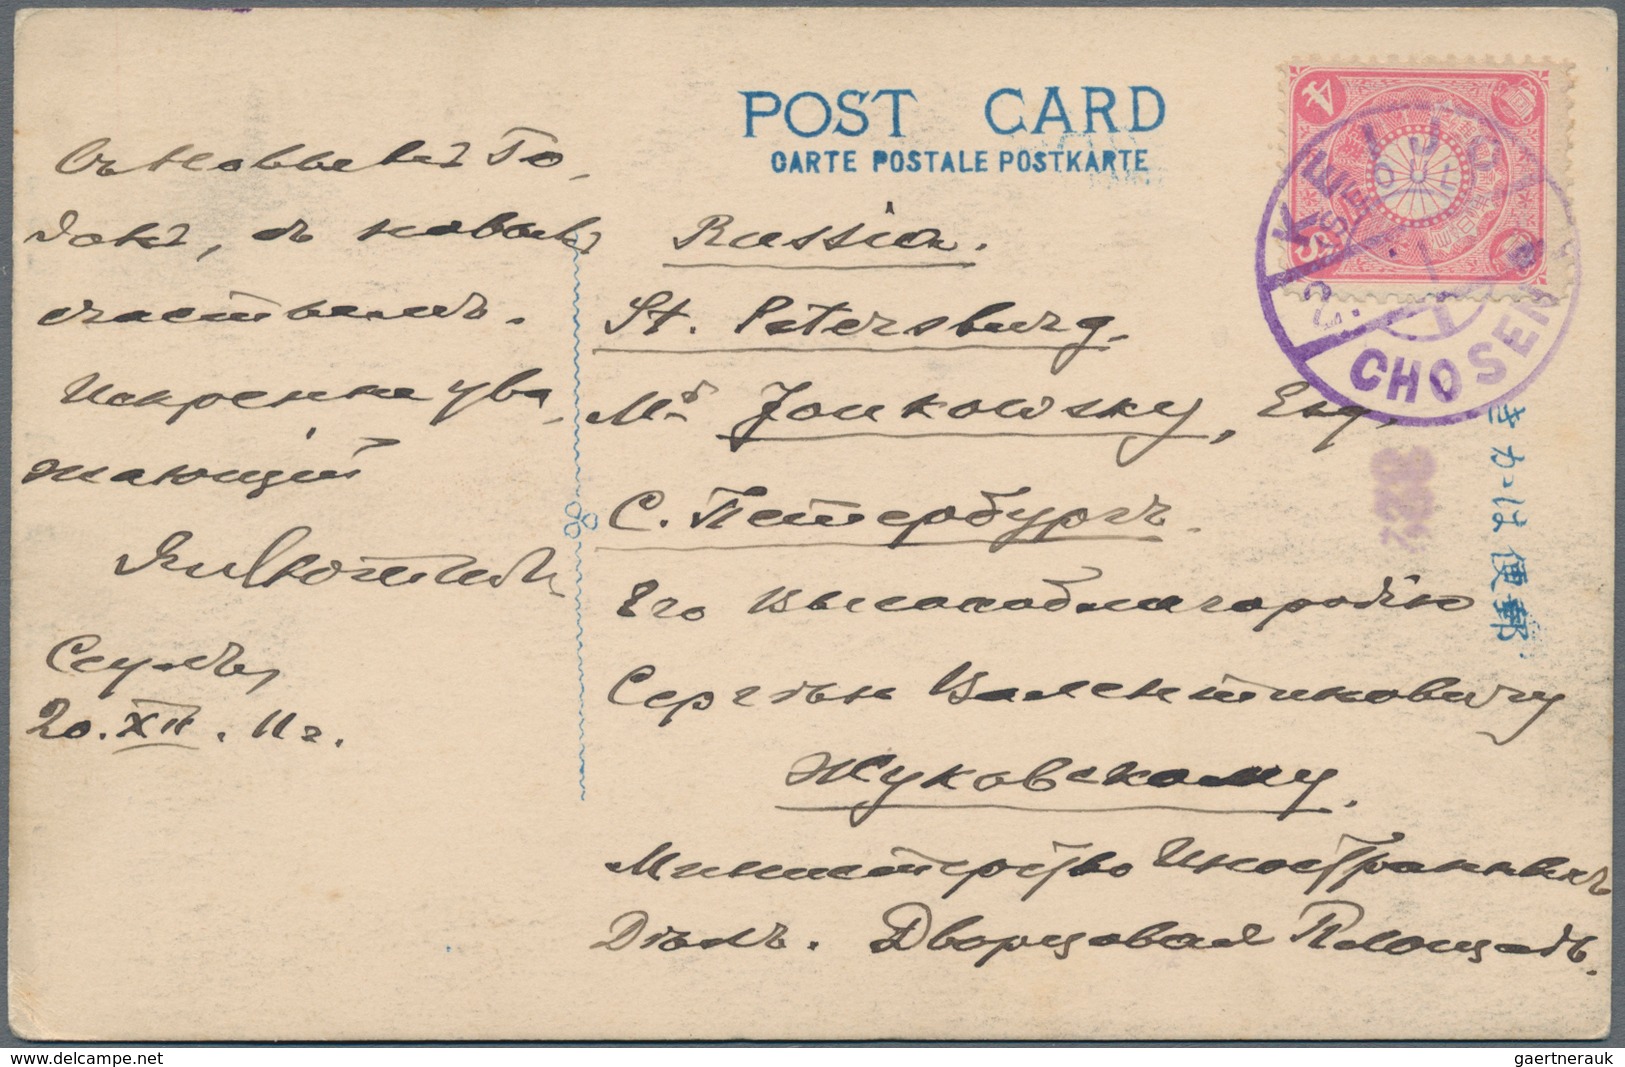 POST CARD
CARTE POSTALE POSTKARTE
Съ Новымъ Го-
домъ, съ новым
счастьемъ.
Искренно ува-
жающій
Сеулъ,
20.XII.11г.
Russia.
St. Petersburg.
Mr Joukowsky, Esq.
С. Петербургъ.
Его Высокоблагородію
Сергѣю Валентиновичу
Жуковскому.
Министерство Иностранныхъ
Дѣлъ. Дворцовая Площадь.
4 S
KEIJO
SEOUL
CHOSEN
きかは便郵
www.delcampe.net
gaertnerauk